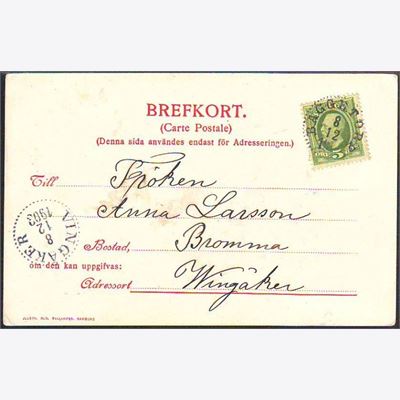 BREFKORT.
(Carte Postale)
(Denna sida användes endast för Adresseringen.)
BAGGETORP
8
12
5
ÖRE
Till Fröken
Anna Larsson
Bostad, Bromma
om den kan uppgifvas:
Adressort Wingåker
VINGÅKER
8
12
1903